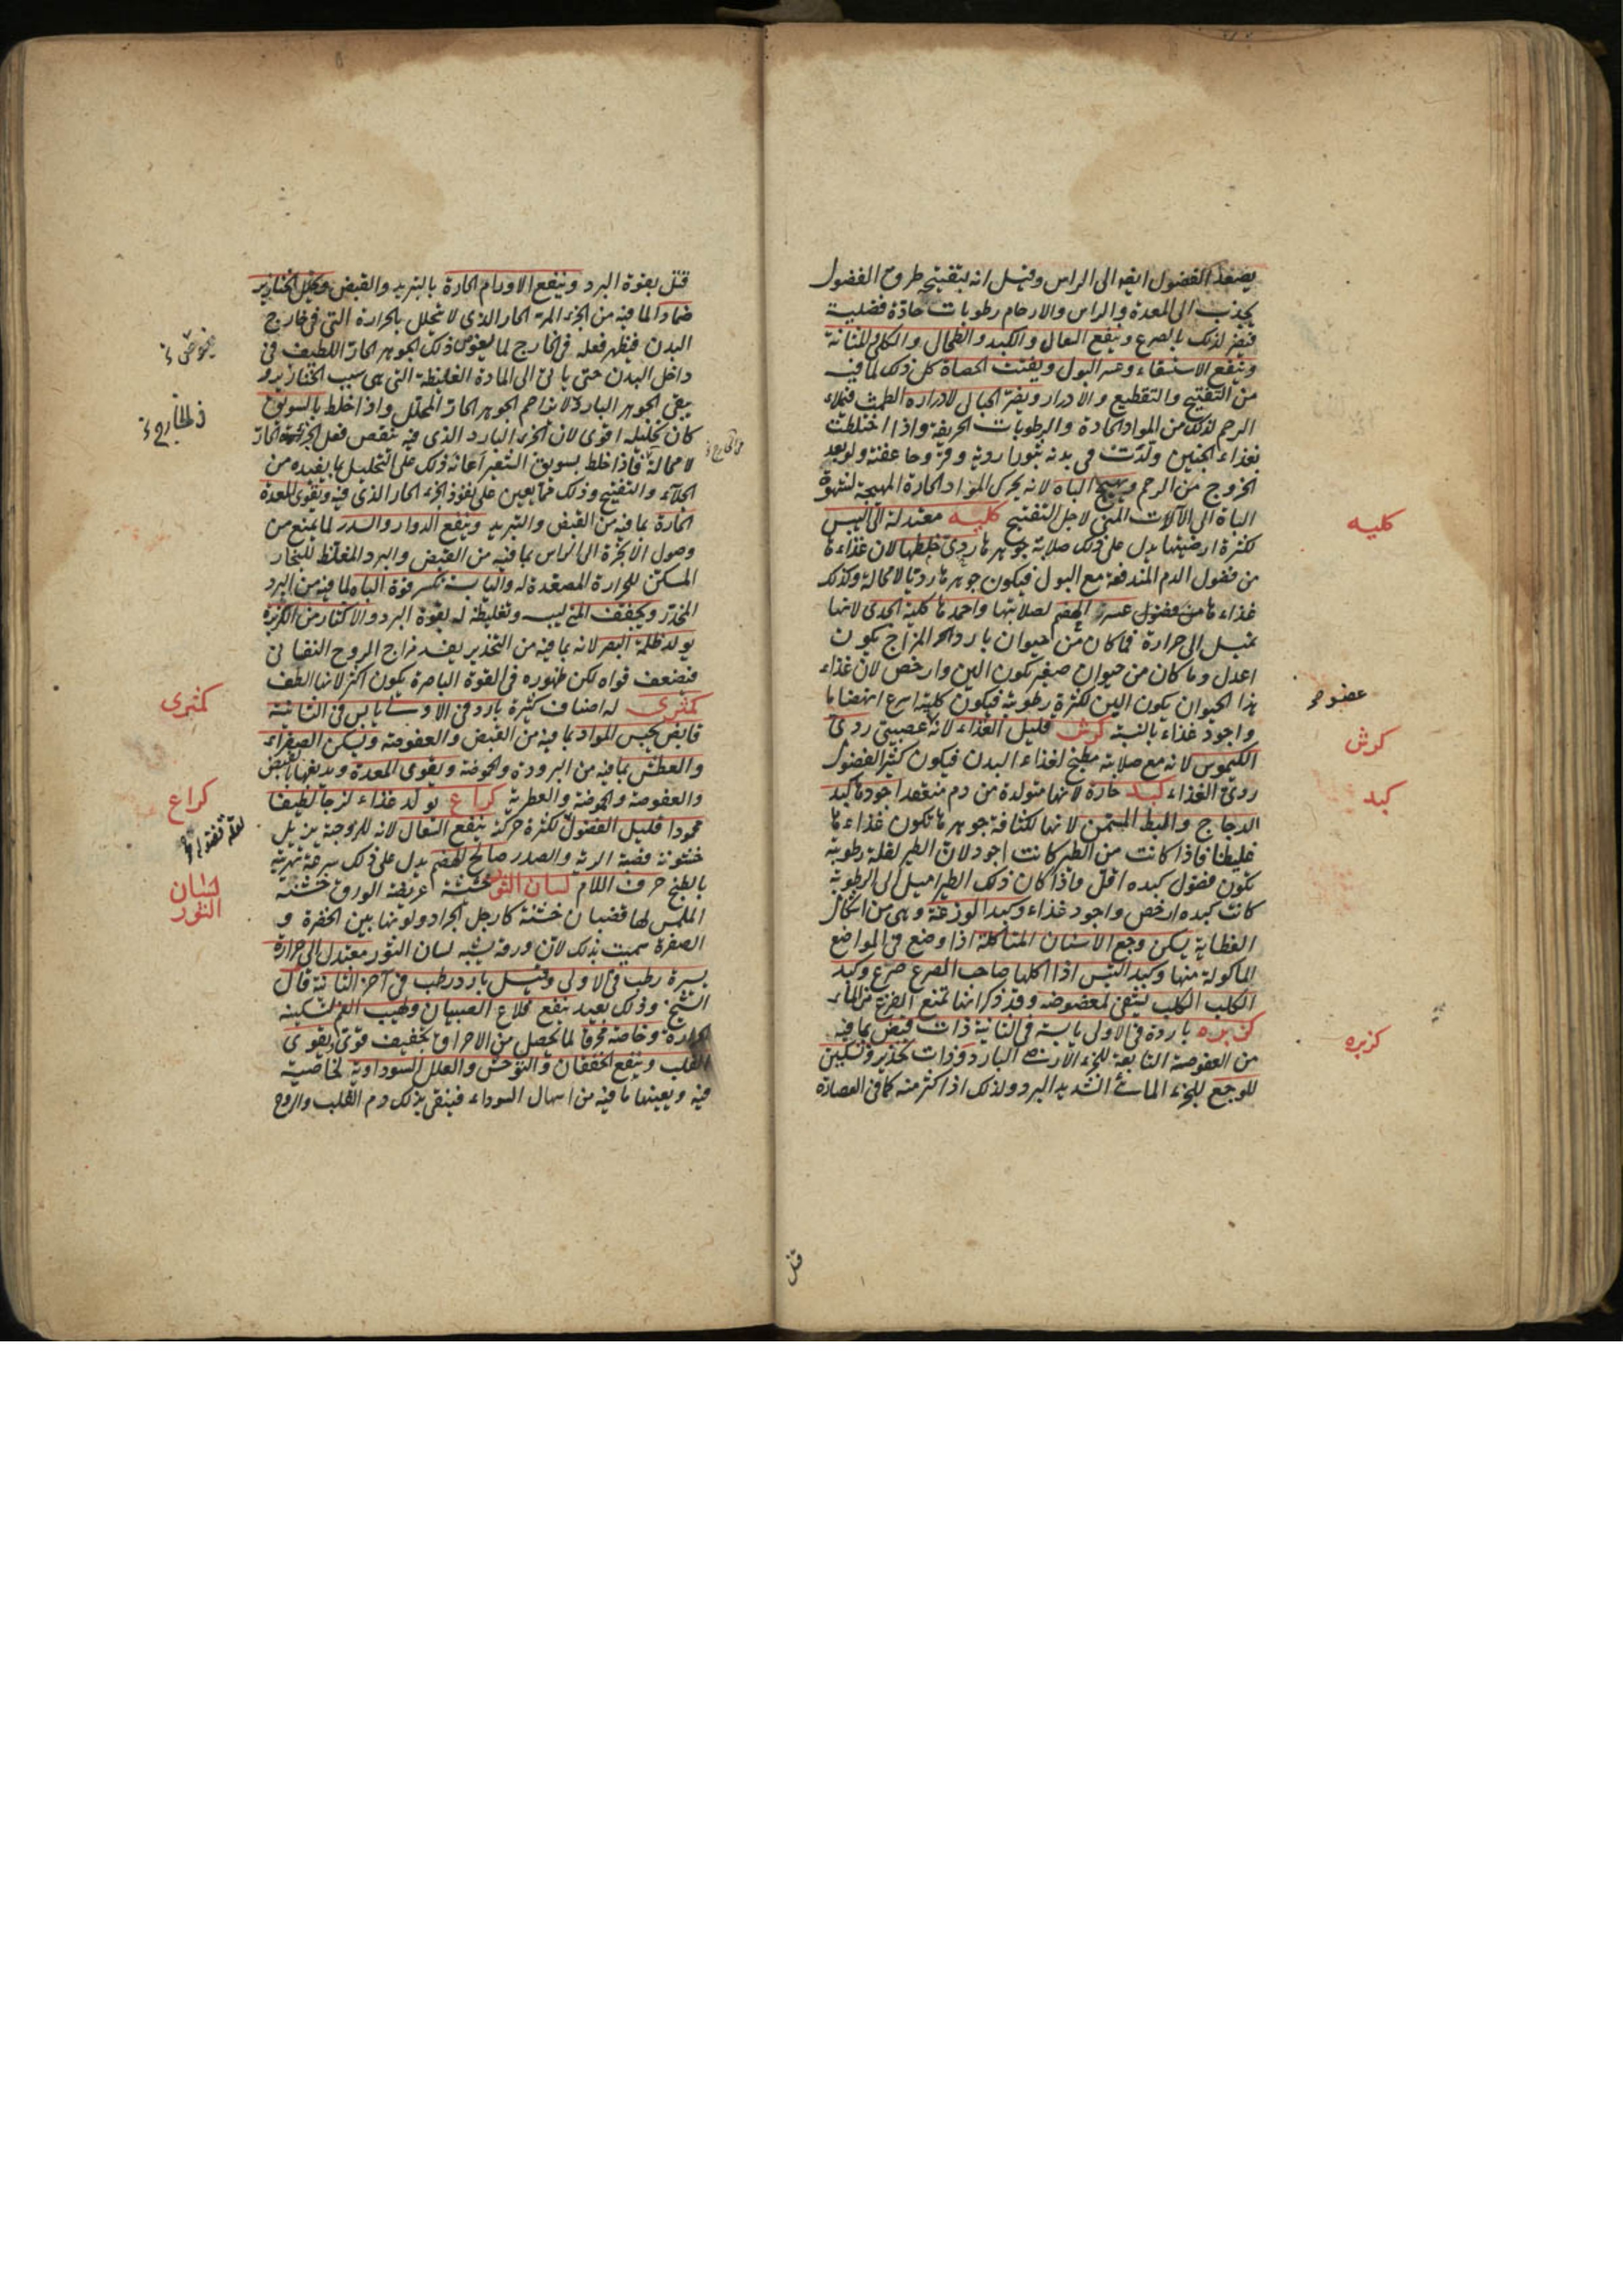 يصعد الفضول ايضا الى الراس وقيل انه بتفتيحه طروق الفضول
يجذب الى المعدة والراس والارحام رطوبات حادة فضلية
فيضر لذلك بالصرع وينفع السعال والكبد والطحال والكلى والمثانة
وينفع الاستسقاء وعسر البول ويفتت الحصاة كل ذلك لما فيه
من التفتيح والتقطيع والادرار ويضر الحبالى لادراره الطمث فيملاء
الرحم لذلك من المواد الحادة والرطوبات الحريفة واذا اختلطت
بغذاء الجنين ولدت في بدنه بثورا ردية وقروحا عفنة ولو بعد
الخروج من الرحم ويهيج الباه لانه يحرك المواد الحارة المهيجة لشهوة
الباه الى الآلات المنى لاجل التفتيح كليه معتدلة الى اليبس
لكثرة ارضيتها يدل على ذلك صلابة جوهرها ردى خلطها لان غذاءها
من فضول الدم المندفعة مع البول فيكون جوهرها رديا لا محالة وكذلك
غذاءها من فضول عسر الهضم لصلابتها واحمدها كلية الجدى لانها
تميل الى حرارة فما كان من حيوان بارد المزاج يكون
اعدل وما كان من حيوان صغير يكون الين وارخص لان غذاء
هذا الحيوان يكون الين لكثرة رطوبته فيكون كليته اسرع انهضاما
واجود غذاء بالنسبة كرش قليل الغذاء لانه عصبيتى ردى
الكيموس لانه مع صلابته مطبخ لغذاء البدن فيكون كثير الفضول
ردى الغذاء كبد حارة لانها متولدة من دم منعقد اجودها كبد
الدجاج والبط المسمن لانها لكثافة جوهرها تكون غذاءها
غليظا فاذا كانت من الطير كانت اجود لان الطير لقلة رطوبته
تكون فضول كبده اقل واذا كان ذلك الطير اميل الى الرطوبة
كانت كبده ارخص واجود غذاء وكبد الوزغة وهى من اشكال
العظاية يسكن وجع الاسنان المتاكلة اذا وضع فى المواضع
الماكولة منها وكبد التيس اذا اكلها صاحب الصرع صرع وكبد
الكلب الكلب يسقى لمعضوضه وقد ذكر انها تمنع الفزع من الماء
كزبره باردة فى الاولى يابسة فى الثانية ذات قبض بما فيه
من العفوصة التابعة للجزء الارضى البارد وذات تخدير وتسكين
للوجع للجزء المائى الشديد البرد ولذلك اذا كثر منه كما فى العصارة
كليه
عضو
كرش
كبد
كزبره
قتل
قتل بقوة البرد وينفع الاورام الحارة بالتبريد والقبض ويحلل الخنازير
ضمادا لما فيه من الجزء المر الحار الذى لا يتحلل بالحرارة التى فى خارج
البدن فيظهر فعله فى الخارج لما يغوص ذلك الجوهر الحار اللطيف فى
داخل البدن حتى ياتى الى المادة الغليظة التى هى سبب الخنازير و
يبقى الجوهر البارد لا يزاحم الجوهر الحار المحلل واذا خلط بالسويق
كان تحليله اقوى لان الجزء البارد الذى فيه ينقص فعل الجزء الحار
لا محالة فاذا خلط بسويق الشعير اعانه ذلك على التحليل بما يفيده من
الجلاء والتفتيح وذلك مما يعين على نفوذ الجزء الحار الذى فيه ويقوى المعدة
الحارة بما فيه من القبض والتبريد وينفع الدوار والسدر لما يمنع من
وصول الابخرة الى الراس بما فيه من القبض والبرد المغلظ للبخار
المسكن للحرارة المصعدة له واليابسة تكسر قوة الباه لما فيه من البرد
المخدر ويجفف المنى ليبسه وتغليظه له بقوة البرد والاكثار من الكزبرة
يولد ظلمة البصر لانه بما فيه من التخدير يفسد مزاج الروح النفسانى
فتضعف قواه لكن ظهوره فى القوة الباصرة يكون اكثر لانها الطف
كمثرى له اصناف كثيرة بارد فى الاولى يابس فى الثانية
قابض يحبس المواد بما فيه من القبض والعفوصة ويسكن الصفراء
والعطش بما فيه من البرودة والحموضة ويقوى المعدة ويدبغها بالقبض
والعفوصة والحموضة والعطرية كراع يولد غذاء لزجا لطيفا
محمودا قليل الفضول لكثرة حركته ينفع السعال لانه للزوجته يزيل
خشونة قصبة الرئة والصدر صالح الهضم يدل على ذلك سرعة تهريه
بالطبخ حرف اللام لسان الثور حشيشة عريضة الورق خشنة
الملمس لها قضبان خشنة كارجل الجراد ولونها بين الخضرة و
الصفرة سميت بذلك لان ورقه يشبه لسان الثور معتدل الى حرارة
يسيرة رطب فى الاولى وقيل بارد رطب فى آخر الثانية قال
الشيخ وذلك بعيد ينفع قلاع الصبيان ولهيب الفم لتسكينه
الحرارة وخاصة محرقا لما يحصل من الاحراق تجفيف قوى ويقوى
القلب وينفع الخفقان والتوحش والعلل السوداوية لخاصية
فيه ويعينها ما فيه من اسهال السوداء فينقى بذلك دم القلب والروح
كمثرى
كراع
لسان
الثور